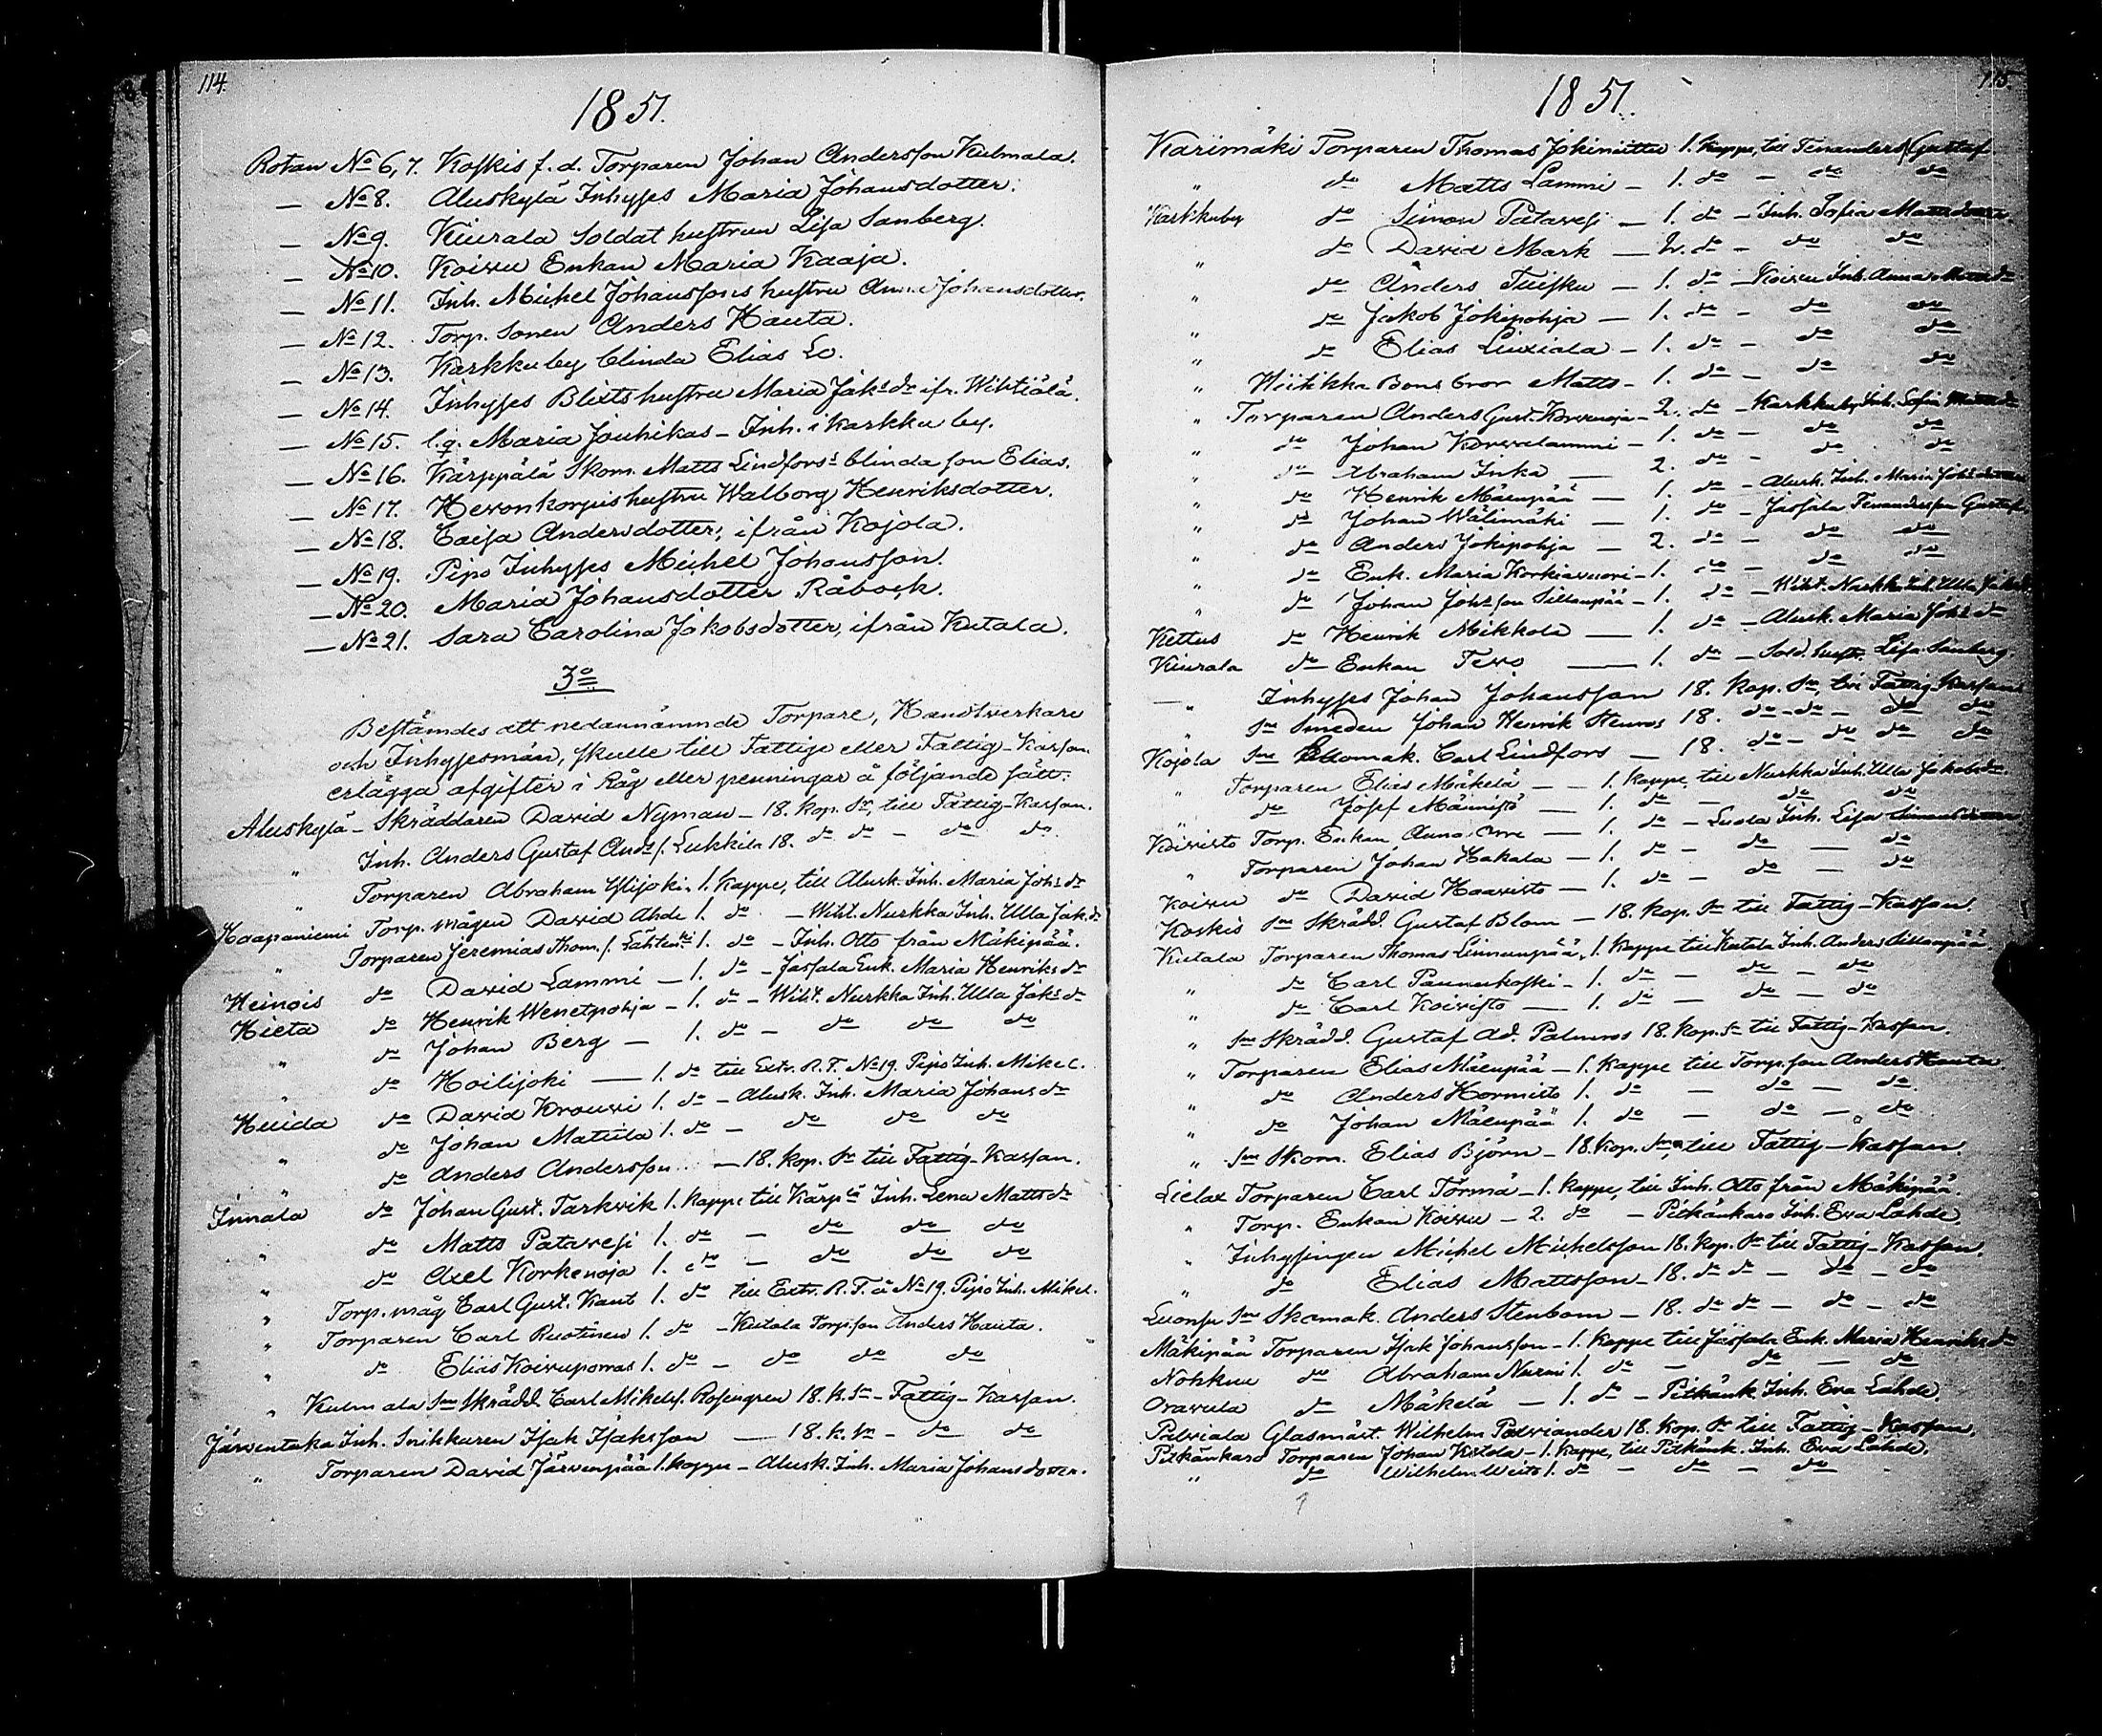 114.
1851.
Rotan No 6, 7. Koskis f. d. Torparen Johan Andersson Kulmala.
— No 8. Aluskylä Inhyses Maria Johansdotter.
— No 9. Kiurala Soldat hustrun Lisa Sanberg.
— No 10. Koivu Enkan Maria Kaaja.
— No 11. Inh. Michel Johanssons hustru Johansdotter.
— No 12. Torp. Sonen Anders Hauta.
— No 13. Karkku by blinda Elias Lo.
— No 14. Inhyses Blixts hustru Maria Jaksdr ifr. Wihtiälä.
— No 15. l. q. Maria Jouhikas - Inh. i Karkku by.
— No 16. Kärppälä Skom. Matts Lindfors's blinda son Elias.
— No 17. Hevonkorpis hustru Walborg Henriksdotter.
— No 18. Caisa Andersdotter, ifrån Kojola.
— No 19. Pipo Inhyses Michel Johansson.
— No 20. Maria Johansdotter Råbock.
— No 21. Sara Carolina Jakobsdotter, ifrån Kutala.
3o
Bestämdes att nedannämnde Torpare, Handtverkare
och Inhysesmän, skulle till Fattige eller Fattig-Kassan
erlägga afgifter i Råg eller penningar å följande sätt:
Aluskylä - Skräddaren David Nyman - 18. kop. Sr, till Fattig-Kassan.
" Inh. Anders Gustaf Ands s. Lukkila 18. do do - do do.
" Torparen Abraham Ylijoki, 1. Kappe, till Alusk. Inh. Maria Johs dr
Haapaniemi Torp. mågen David Ahde 1. do - Wiht. Nurkka Inh. Ulla Jak. dr
" Torparen Jeremias Thom. s. 1. do - Inh. Otto från Mäkipää.
Heinois do David Lammi - 1. do - Jassala Enk. Maria Henriks dr
Hieta do Henrik Wenetpohja - 1. do - Wiht. Nurkka Inh. Ulla Jaks dr
" do Johan Berg - 1. do - do do do
" do Hoilijoki — 1. do till Extr. R. F. No 19. Pipo Inh. Mikel.
Huida do David Krouvi 1. do - Alusk. Inh. Maria Johans dr
" do Johan Mattila 1. do - do do do
" do Anders Andersson - 18. kop. Sr till Fattig-Kassan.
Innala do Johan Gust. Tarkvik 1. kappe till Kärp lä Inh. Lena Matts dr
" do Matts Patavesi 1. do - do do do
" do Axel Korkenoja 1. do - do do do
" Torp. måg Carl Gust. Kant 1. do till Extr. R. F. å No 19. Pipo Inh. Mikel.
" Torparen Carl Ruotinen 1. do - Kutala Torp. son Anders Hauta.
" do Elias Koivuporras 1. do - do do do
" Kulmala Sne Skrädd. Carl Mikels s. Rosengren 18. k. Sr - Fattig-Kassan.
Järventaka Inh. Snikkaren Isak Isaksson — 18. k. Sr - do do
" Torparen David Järvenpää 1. kappe - Alusk. Inh. Maria Johansdotter.
115.
1851.
Karimäki Torparen Thomas Jokiniittu 1. kappe, till Tenanders Gustaf
" do Matts Lammi - 1. do - do do
Karkkuby do Simon Patavesi - 1. do - Inh. Sofia Mattsdotter
" do David Mark — 2. do - do do
" do Anders Tuisku - 1. do - Koivu Inh. Anna
" do Jakob Jokipohja - 1. do - do do
" do Elias Liuxiala - 1. do - do do
" Hiitikka Bons bror Matts - 1. do - do do
" Torparen Anders Gust. 2. do - Karkkuby Inh. Sofia
" do Johan Korvalammi - 1. do - do do
" do Abraham Inka — 2. do - do do
" do Henrik Mäenpää — 1. do - Alusk. Inh. Maria Johs
" do Johan Wälimäki — 1. do - Jassala Gustaf.
" do Anders Jokipohja — 2. do - do do
" do Enk. Maria Korkiavuori - 1. do - do do
" do Johan Johsson Sillanpää - 1. do - Wiht. Nurkka Inh. Ulla
Kettus do Henrik Mikkola — 1. do - Alusk. Maria Johs dr
Kiurala do Enkan Tero — 1. do - Sold. hustr. Lisa Sanberg.
— " Inhyses Johan Johansson 18. kop. Sr, till Fattig-Kassan
" Sne Smeden Johan Henrik Stenros 18. do - do - do do
Kojola Sne Carl Lindfors — 18. do - do do do
" Torparen Elias Mäkelä — 1. kappe, till Nurkka Inh. Ulla Jakobsdr.
" do Josef Männistö — 1. do - do do
Koivisto Torp. Enkan Anna — 1. do - Luola Inh. Lisa
" Torparen Johan Hakala - 1. do - do — do
Koivu do David Haavisto — 1. do - do — do
Koskis Sne Skrädd. Gustaf Blom - 18. kop. Sr till Fattig-Kassan.
Kutala Torparen Thomas Linnanpää, 1. kappe till Kutala Inh. Anders Sillanpää
" do Carl Pannukoski - 1. do — do - do
" do Carl Koivisto — 1. do — do - do
" Sne Skrädd. Gustaf Ad. Palmros 18. kop. Sr till Fattig-Kassan.
" Torparen Elias Mäenpää - 1. kappe till Torp. son Anders Hauta
" do Anders Hormisto 1. do - do - do.
" do Johan Mäenpää 1. do - do - do
" Sne Skom. Elias Björn - 18. kop. Sr, till Fattig-Kassan.
Lielax Torparen Carl Törmä - 1. kappe, till Inh. Otto från Mäkipää.
" Torp. Enkan Koivu - 2. do - Pitkänkaro Inh. Eva Lahde
" Inhysingen Michel Mickelsson 18. kop. Sr till Fattig-Kassan.
" do Elias Mattsson - 18. do do - do - do
Sne Skomak. Anders Stenbom - 18. do do - do - do
Mäkipää Torparen Isak Johansson - 1. kappe till Jassala Enk. Maria Henriks dr
Nohkua do Abraham Nurmi 1. do — do — do
Oravula do Mäkelä — 1. do - Pitkänk. Inh. Eva Lahde.
Palviala Glasmäst. Wilhelm Palviander 18. kop. Sr till Fattig-Kassan.
Pitkänkaro Torparen Johan Kistola - 1. kappe, till Pitkänk. Inh. Eva Lahde.
" do Wilhelm 1. do - do - do